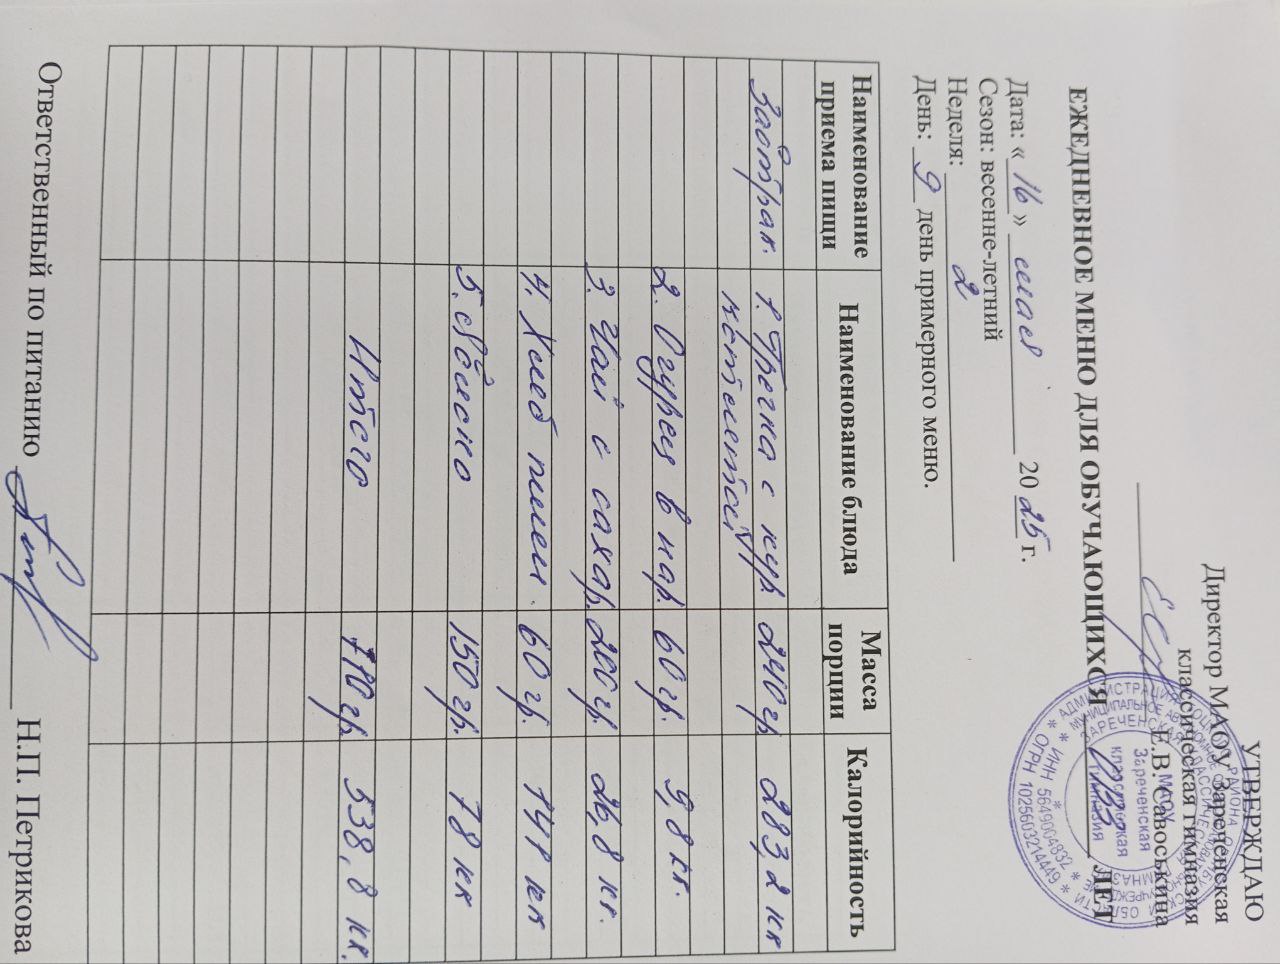 УТВЕРЖДАЮ
Директор МАОУ Зареченская
классическая гимназия
Е.В. Савоськина
ЕЖЕДНЕВНОЕ МЕНЮ ДЛЯ ОБУЧАЮЩИХСЯ ЛЕТ
Дата: «16» мая 2025 г.
Сезон: весенне-летний
Неделя: 2
День: 9 день примерного меню.
Наименование приема пищи Наименование блюда Масса порции Калорийность
Завтрак. 1. Гречка с кур. 240 гр. 283,2 кк
котлетой
2. Огурец в нар. 60 гр. 9,8 кк.
3. Чай с сахар. 200 гр. 26,8 кк.
4. Хлеб пшен. 60 гр. 141 кк
5. Яблоко 150 гр. 78 кк
Итого 710 гр. 538,8 кк.
Ответственный по питанию Н.П. Петрикова
МАОУ
Зареченская
классическая
гимназия
ИНН 5649004832
ОГРН 1025603214449